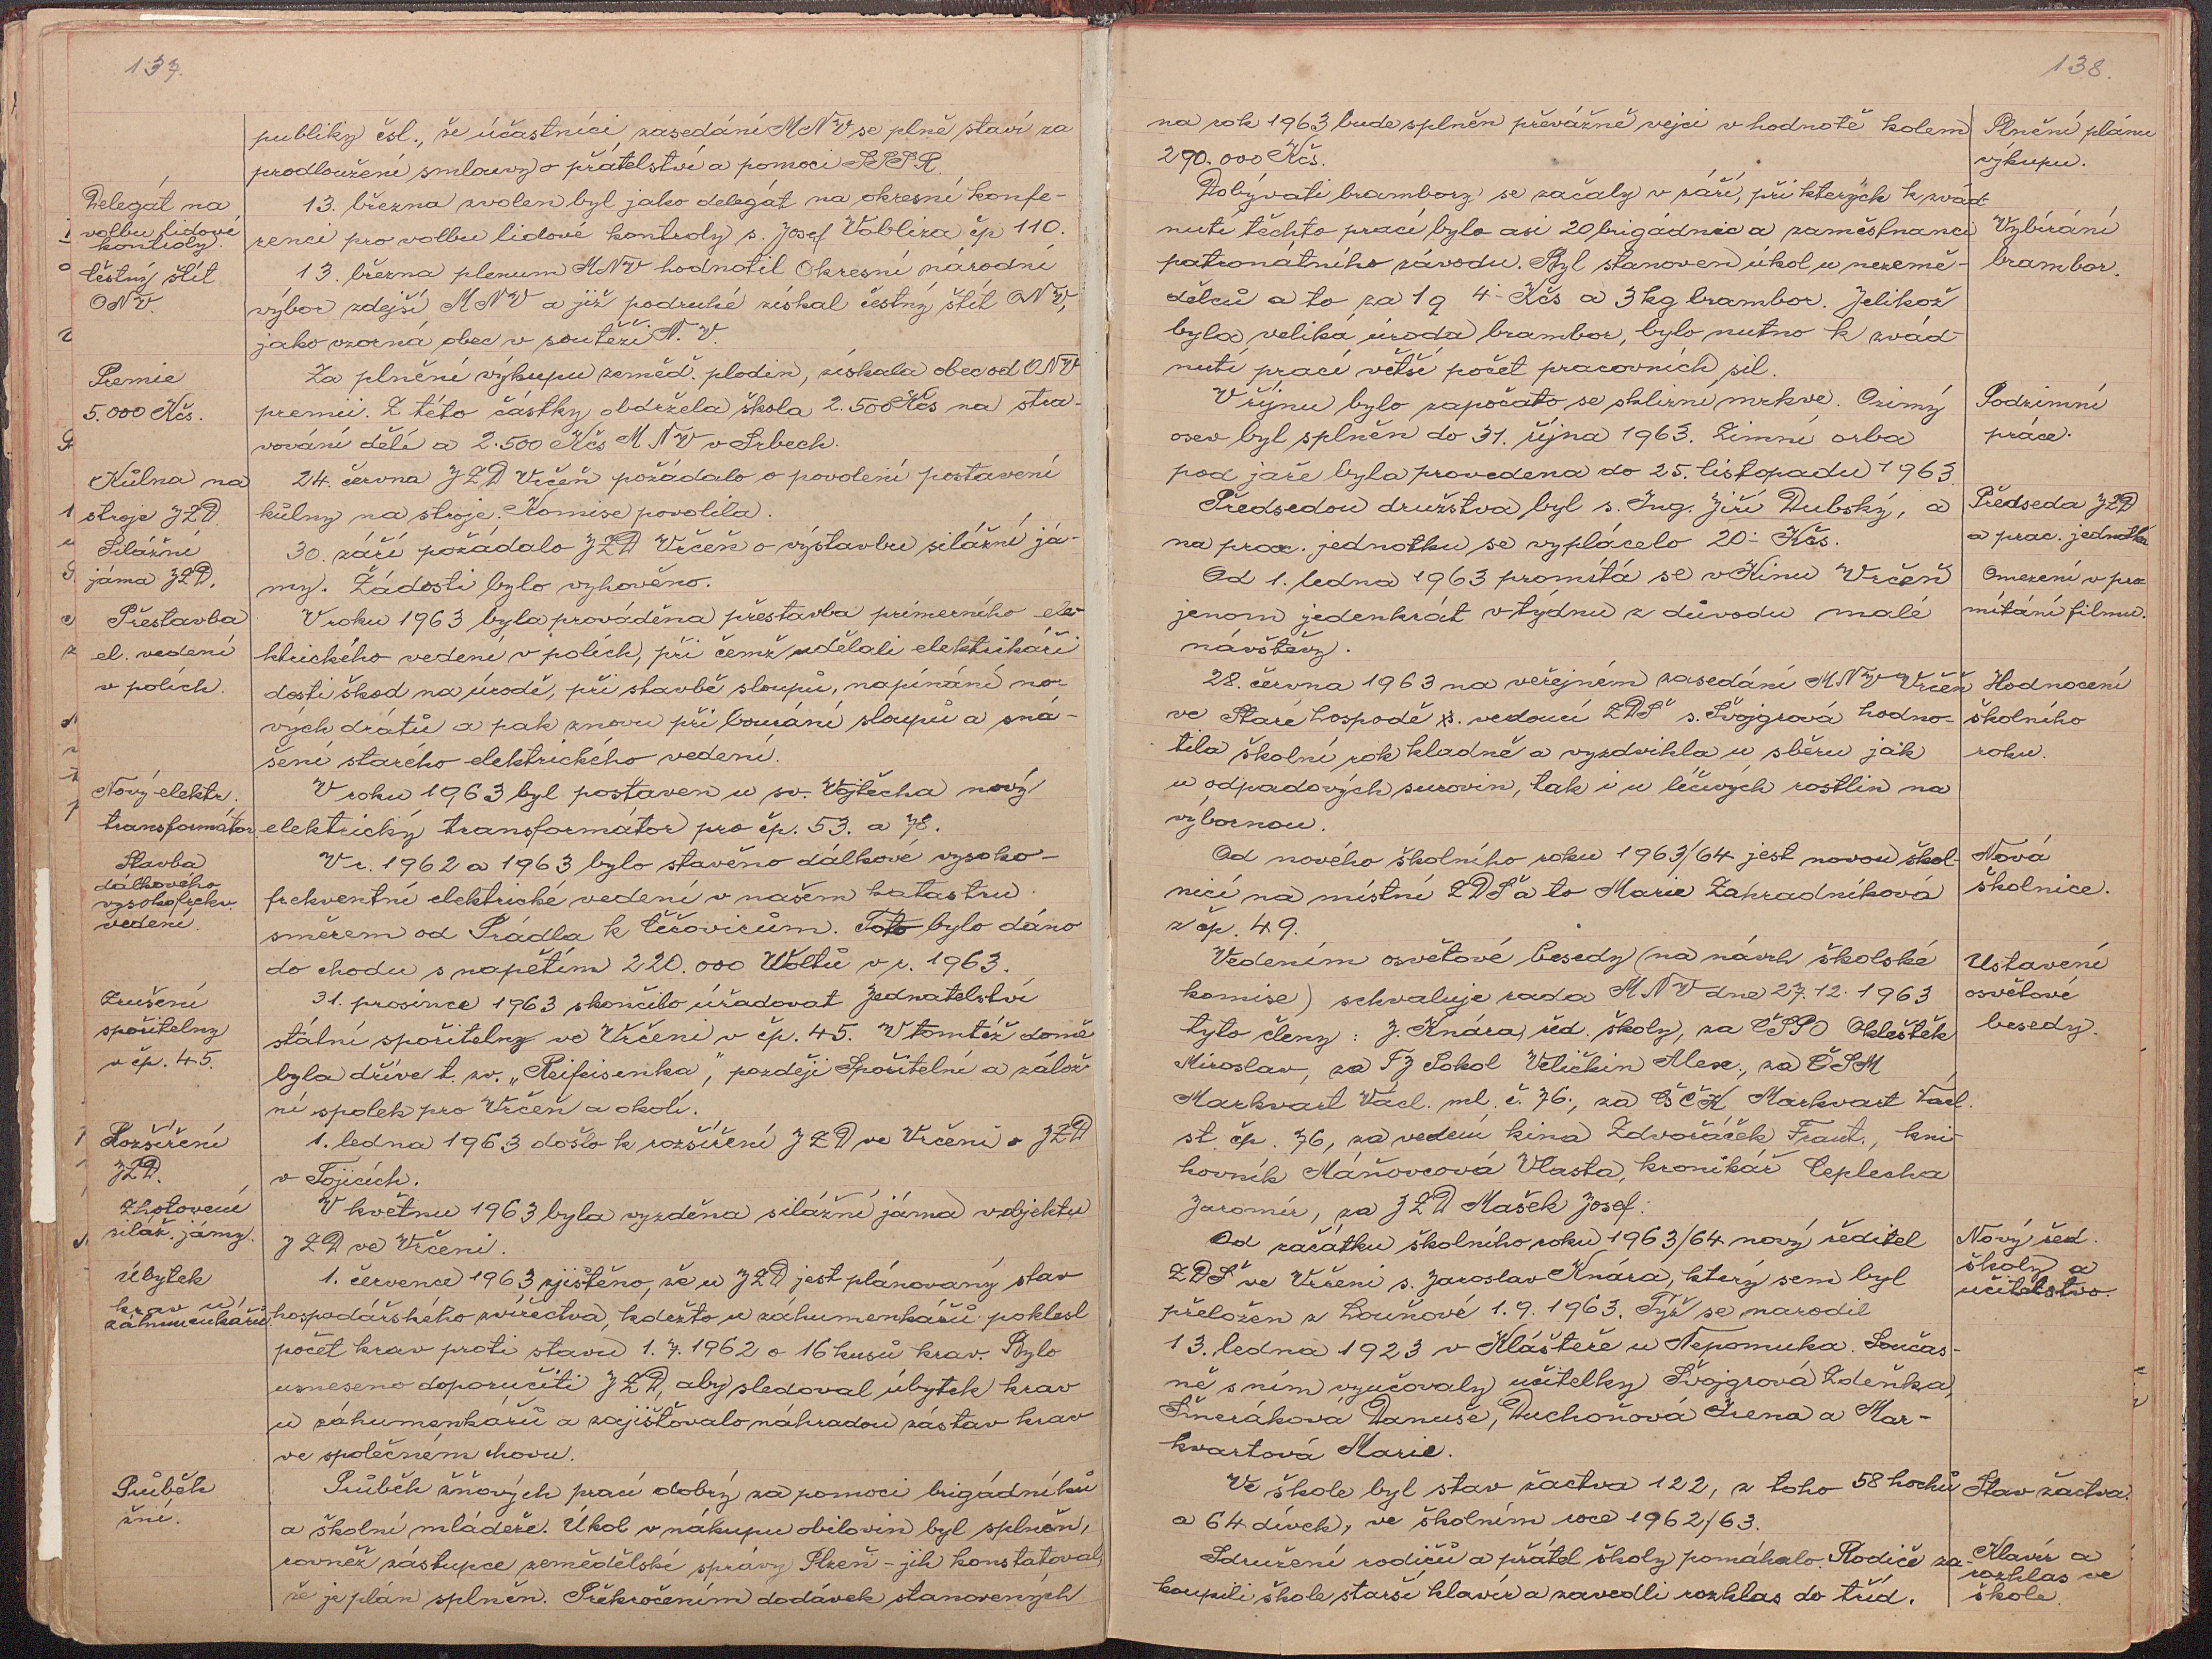 137.
publiky čsl., že účastníci zasedání MNV se plně staví za
prodloužení smlouvy o přátelství a pomoci SSSR.
Delegát na
volbu lidové
kontroly.
13. března zvolen byl jako delegát na okresní konfe-
renci pro volbu lidové kontroly s. Josef Vobliza čp 110.
Čestný štít
ONV.
13. března plenum MNV hodnotil Okresní národní
výbor zdejší MNV a již podruhé získal čestný štít ONV,
jako vzorná obec v soutěži N. V.
Premie
5.000 Kčs.
Za plnění výkupu zeměd. plodin, získala obec od ONV
premii. Z této částky obdržela škola 2.500 Kčs na stra-
vování dětí a 2.500 Kčs MNV v Srbech.
Kůlna na
stroje JZD
24. června JZD Vrčeň požádalo o povolení postavení
kůlny na stroje. Komise povolila.
Silážní
jáma JZD.
30. září požádalo JZD Vrčeň o výstavbu silážní já-
my. Žádosti bylo vyhověno.
Přestavba
el. vedení
v polích.
V roku 1963 byla prováděna přestavba primerního ele-
ktrického vedení v polích, při čemž udělali elektrikáři
dosti škod na úrodě, při stavbě sloupů, napínání no-
vých drátů a pak znovu při bourání sloupů a sná-
šení starého elektrického vedení.
Nový elektr.
transformátor
V roku 1963 byl postaven u sv. Vojtěcha nový
elektrický transformátor pro čp. 53. a 78.
Stavba
dálkového
vysokofrekv.
vedení.
V r. 1962 a 1963 bylo stavěno dálkové vysoko-
frekventní elektrické vedení v našem katastru
směrem od Prádla k Čížovicům. Toto bylo dáno
do chodu s napětím 220.000 Woltů v r. 1963.
Zrušení
spořitelny
v čp. 45.
31. prosince 1963 skončilo úřadovat Jednatelství
státní spořitelny ve Vrčeni v čp. 45. V tomtéž domě
byla dříve t. zv. „Reifeisenka", později Spořitelní a zálož-
ní spolek pro Vrčeň a okolí.
Rozšíření
JZD.
1. ledna 1963 došlo k rozšíření JZD ve Vrčeni o JZD
v Tojicích.
Zhotovení
siláž. jámy.
V květnu 1963 byla vyzděna silážní jáma v objektu
JZD ve Vrčeni.
Úbytek
krav u
záhumenkářů.
1. července 1963 zjištěno, že u JZD jest plánovaný stav
hospodářského zvířectva, kdežto u záhumenkářů poklesl
počet krav proti stavu 1. 7. 1962 o 16 kusů krav. Bylo
usneseno doporučiti JZD, aby sledoval úbytek krav
u záhumenkářů a zajišťovalo náhradou zástav krav
ve společném chovu.
Průběh
žní.
Průběh žňových prací dobrý za pomoci brigádníků
a školní mládeže. Úkol v nákupu obilovin byl splněn,
rovněž zástupce zemědělské správy Plzeň-jih konstatoval,
že je plán splněn. Překročením dodávek stanovených
138.
na rok 1963 bude splněn převážně vejci v hodnotě kolem
290.000 Kčs.
Plnění plánu
výkupu.
Dobývati brambory se začaly v září, při kterých k zvád-
nutí těchto prací bylo asi 20 brigádnic a zaměstnanci
patronátního závodu. Byl stanoven úkol u nezemě-
dělců a to za 1q 4.- Kčs a 3 kg brambor. Jelikož
byla veliká úroda brambor, bylo nutno k zvád-
nutí prací větší počet pracovních sil.
Vybírání
brambor.
V říjnu bylo započato se sklizní mrkve. Ozimý
osev byl splněn do 31. října 1963. Zimní orba
pod jaře byla provedena do 25. listopadu 1963
Podzimní
práce.
Předsedou družstva byl s. Ing. Jiří Dubský, a
na prac. jednotku se vyplácelo 20.- Kčs.
Předseda JZD
a prac. jednotka
Od 1. ledna 1963 promítá se v Kinu Vrčeň
jenom jedenkrát v týdnu z důvodu malé
návštěvy.
Omezení v pro
mítání filmu.
28. června 1963 na veřejném zasedání MNV Vrčeň
ve Staré hospodě s. vedoucí ZDŠ s. Švojgrová hodno-
tila školní rok kladně a vyzdvihla u sběru jak
u odpadových surovin, tak i u léčivých rostlin na
výbornou.
Hodnocení
školního
roku.
Od nového školního roku 1963/64 jest novou škol-
nicí na místní ZDŠ a to Marie Zahradníková
z čp. 49.
Nová
školnice.
Vedením osvětové besedy (na návrh školské
komise) schvaluje rada MNV dne 27.12.1963
tyto členy: J. Knára, řed. školy, za ČSPO Oklešťěk
Miroslav, za TJ Sokol Veličkin Alex., za ČSM
Markvart Václ. ml. č. 76., za ČSČK Markvart Václ.
st. čp. 76, za vedení kina Zdvořáček Frant., kni-
hovník Máňovcová Vlasta, kronikář Ceplecha
Jaromír, za JZD Mašek Josef.
Ustavení
osvětové
besedy.
Od začátku školního roku 1963/64 nový ředitel
ZDŠ ve Vrčeni s. Jaroslav Knára, který sem byl
přeložen z Louňové 1.9.1963. Týž se narodil
13. ledna 1923 v Klášteře u Nepomuka. Součas-
ně s ním vyučovaly učitelky Švojgrová Zdeňka,
Šmeráková Danuše, Duchoňová Irena a Mar-
kvartová Marie.
Nový řed.
školy a
učitelstvo.
Ve škole byl stav žactva 122, z toho 58 hochů
a 64 dívek, ve školním roce 1962/63.
Stav žactva.
Sdružení rodičů a přátel školy pomáhalo. Rodiče za-
koupili škole starší klavír a zavedli rozhlas do tříd.
Klavír a
rozhlas ve
škole.